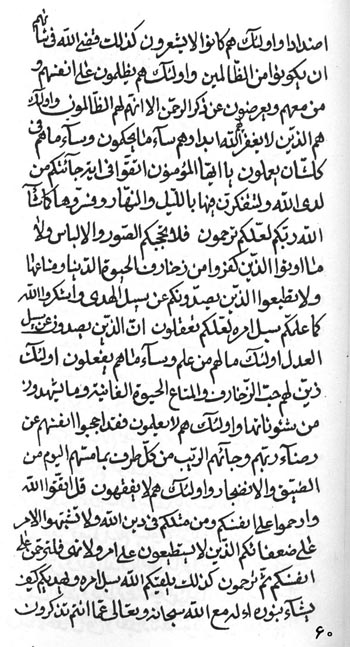 اضدادا و اولئك هم كانوا لا يشعرون كذلك قضى الله فى شانهم
ان يكونوا من الظالمين و اولئك هم يظلمون على انفسهم و
من معهم و يعرضون عن ذكر الرحمن الا انهم لهم الظالمون و اولئك
هم الذين لا يغفر الله ابدا و هم ساء ما يحكمون و ساء ما هم فى
كل شان يعملون يا ايها المؤمنون اتقوا فى جائتكم من
لدى الله و لتفكرن فيها بالليل و النهار و
الله ربكم لعلكم ترحمون فلا يحجبكم الصور و الالباس و لا
ما اوتوا الذين كفروا من زخارف الحيوة الدنيا و متاعها
و لا تطيعوا الذين يصدونكم عن سبيل الهدى و اشكروا الله
كما علمكم سبل امره لعلكم تعقلون ان الذين يصدون عن سبيل
العدل اولئك ما لهم من علم و ساء ما هم يفعلون اولئك
زين لهم حب الزخارف و المتاع الحيوة الفانية و ما يشهدون
من شئوناتها و اولئك هم لا يعلمون فقد احجبوا انفسهم عن
رضاء ربهم و جائهم الريب من كل طرف بما متهم اليوم من
الضيق و الانفجار و اولئك هم لا يفقهون قل اتقوا الله
و ارحموا على انفسكم و من مثلكم فى دين الله و لا تشبهوا الامر
على ضعفائكم الذين لا يستطيعون على امر و لا نهى فلترحمن على
انفسكم ثم ترحمون كذلك يلقيكم الله سبل امره و يهديكم كيف
يشاء بنوره اءله مع الله سبحانه و تعالى عما انتم تذكرون
٦٠